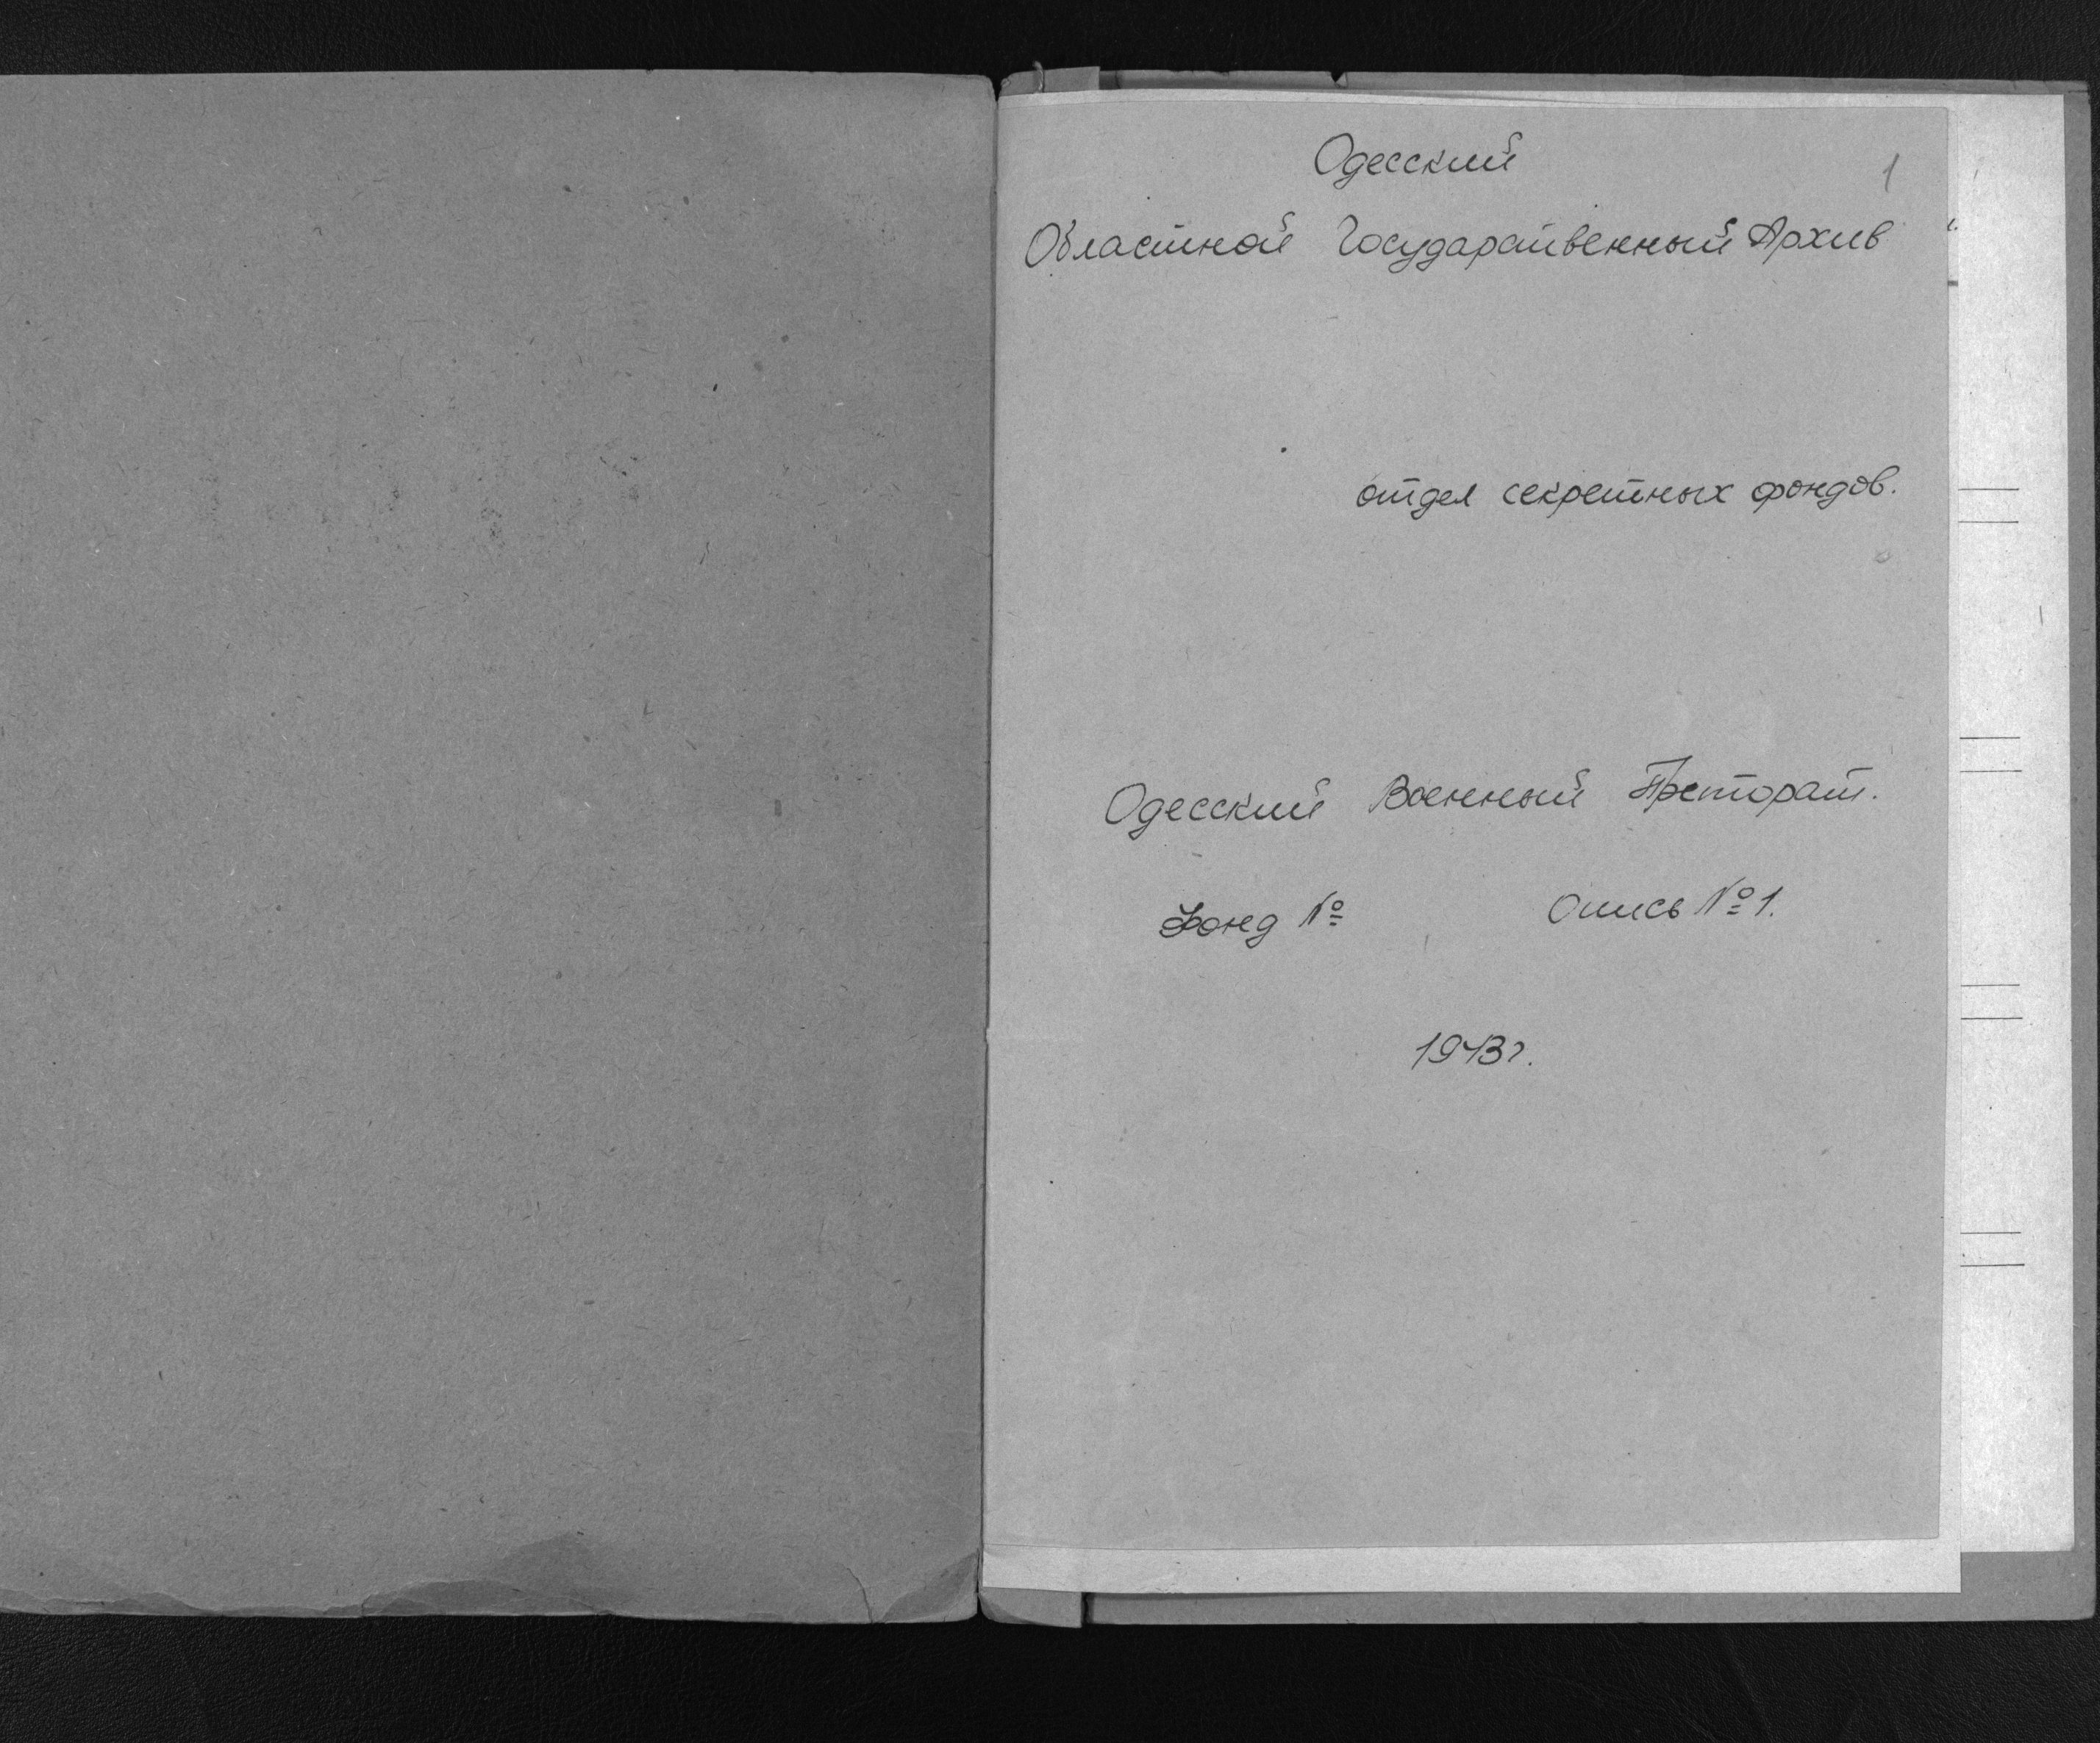 Одесский
1
Областной Государственный Архив
отдел секретных фондов.
Одесский Военный Преторат.
Фонд № Опись № 1.
1943г.